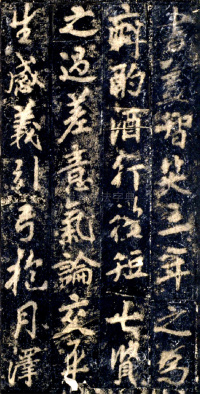 書蓋智矣三年之
酌酒行短七賢
之過差意氣論交平
生感義引弓抱月澤